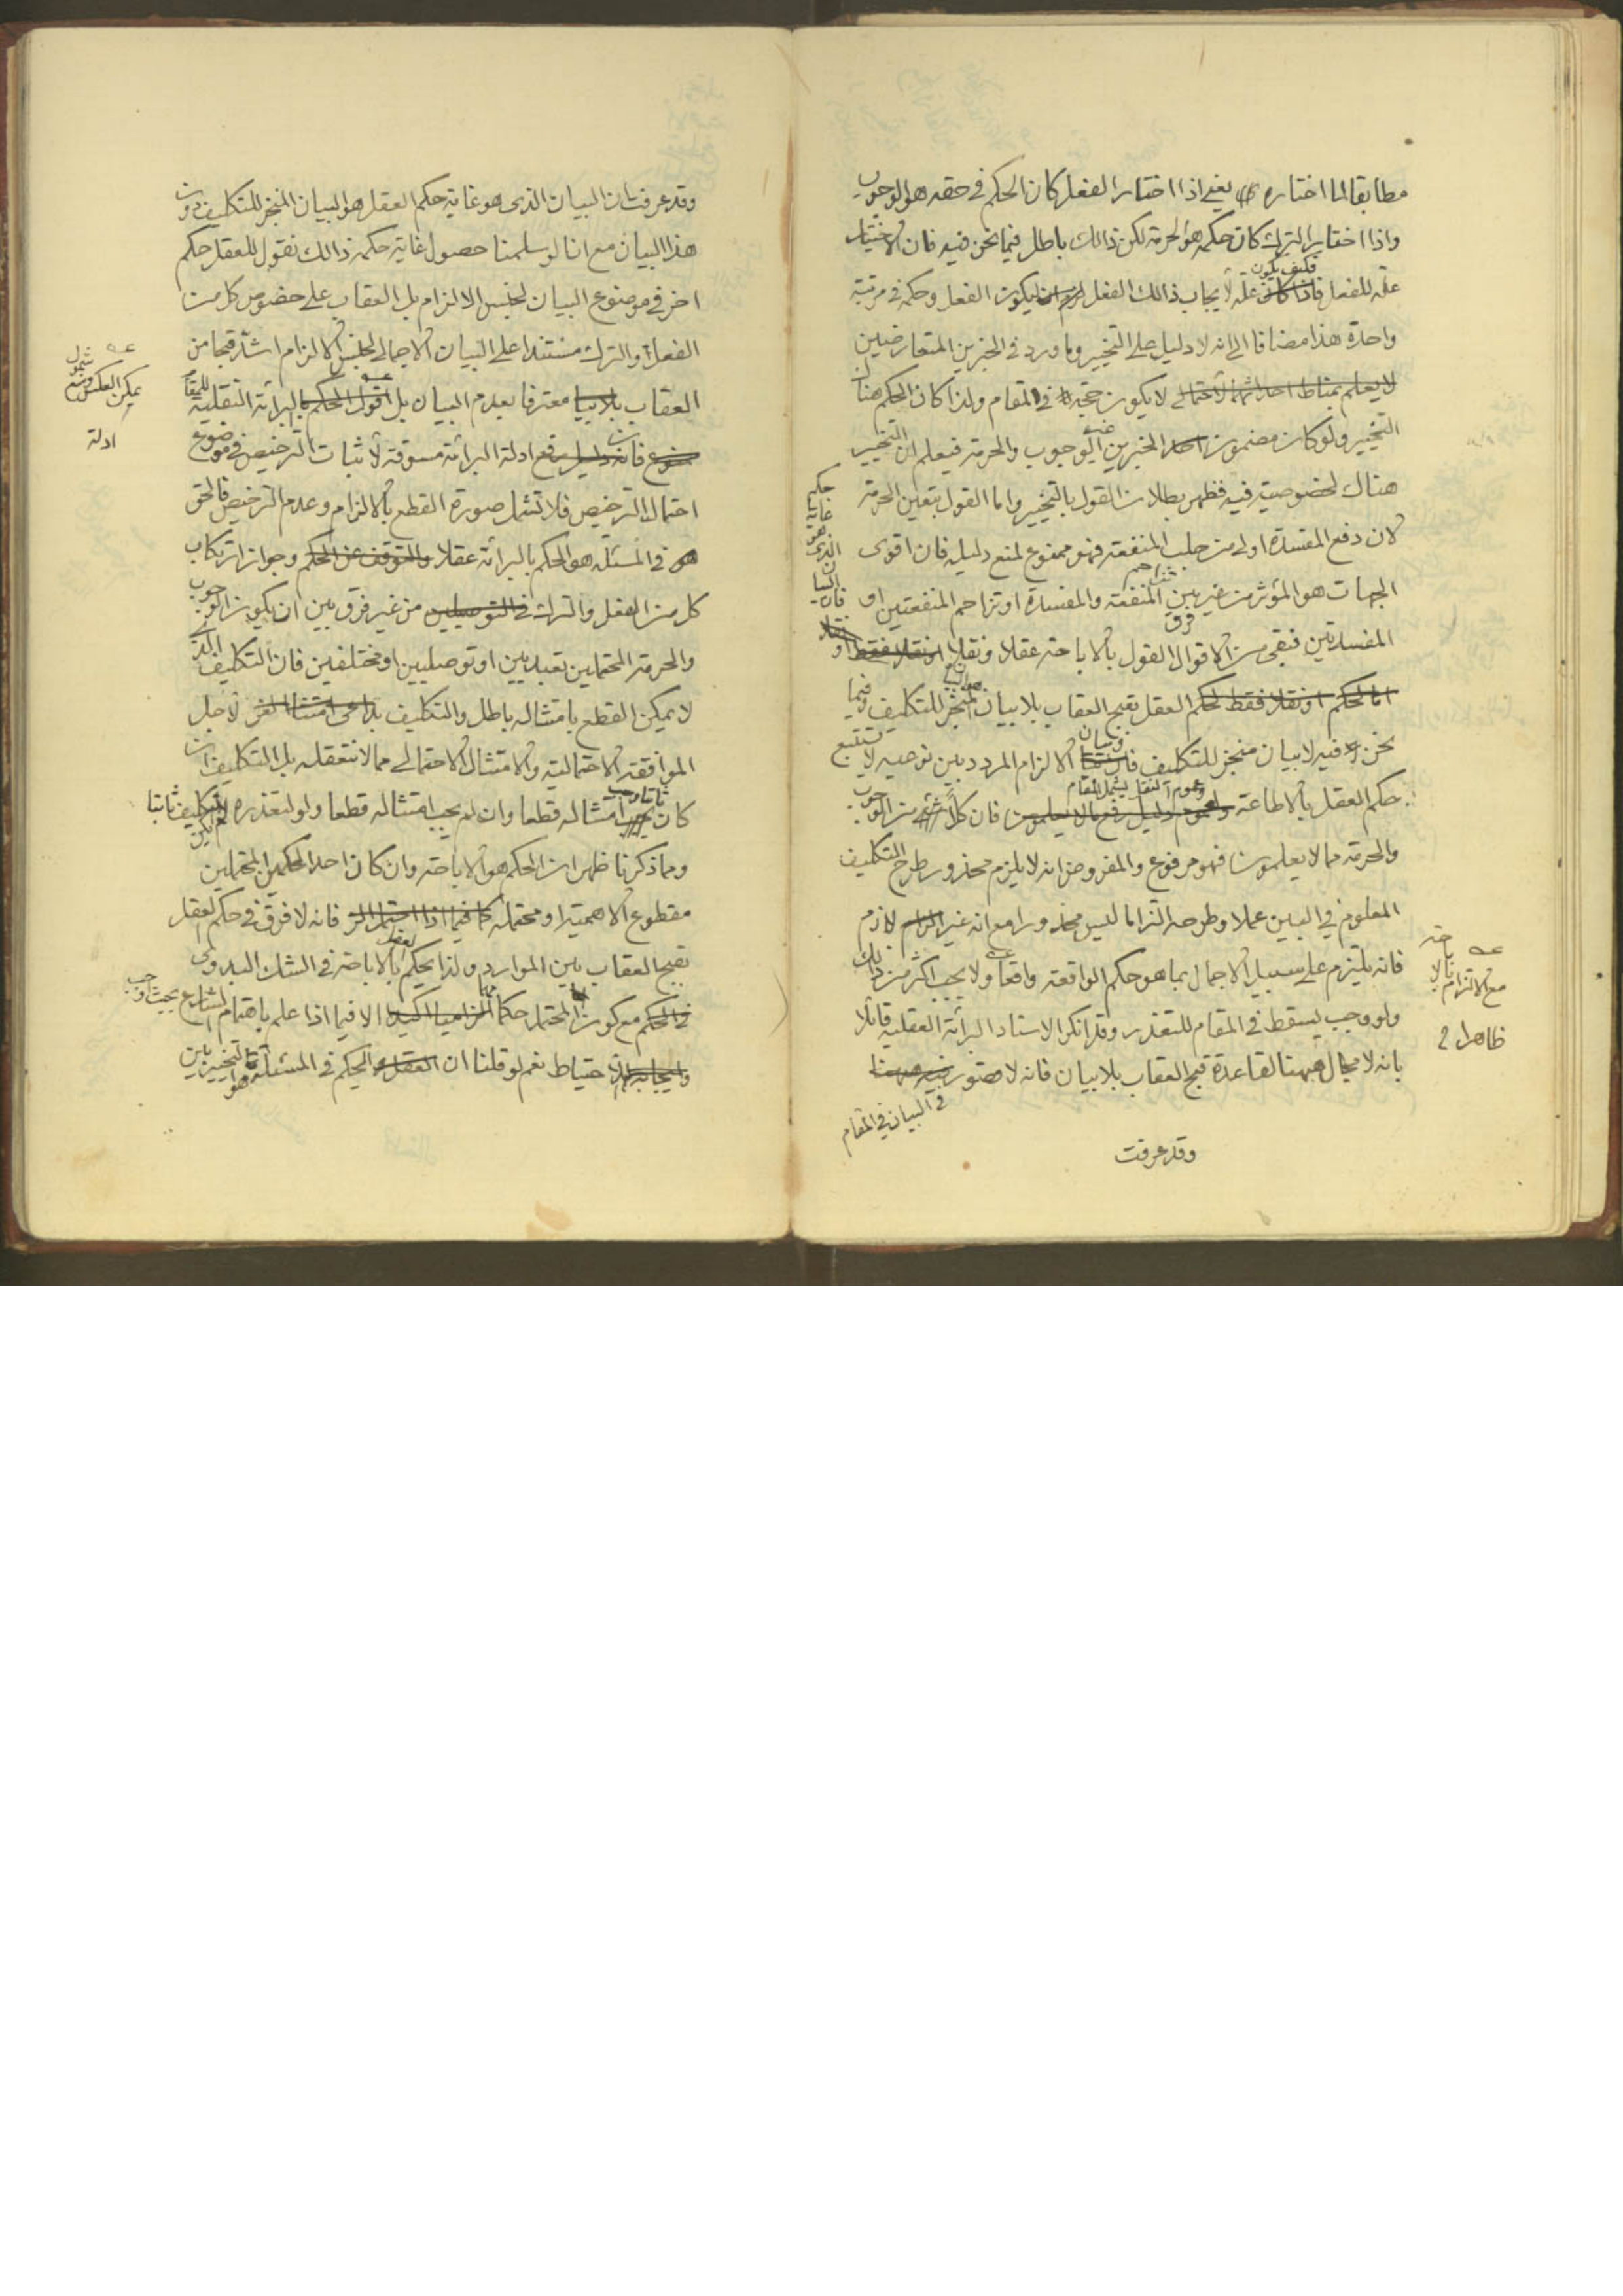 مطابقا لما اختاره يعنى اذا اختار الفعل كان الحكم فى حقه هو الوجوب
واذا اختار الترك كان حكمه هو الحرمة لكن ذالك باطل فيما نحن فيه فان الاختيار
علة للفعل فكيف يكون علة لايجاب ذالك الفعل ليكون الفعل وحكمه فى مرتبة
واحدة هذا مضافا الى انه لا دليل على التخيير وما ورد فى الخبرين المتعارضين
لا يعلم بمناط لا يكون حجة فى المقام ولذا كان الحكم هناك
التخيير ولو كان مضمون الخبرين غير الوجوب والحرمة فيعلم ان التخيير
هناك لخصوصية فيه فظهر بطلان القول بالتخيير واما القول بتعين الحرمة
لان دفع المفسدة اولى من جلب المنفعة فهو ممنوع لمنع دليله فان اقوى
الجهات هو المؤثر من غير فرق بين تزاحم المنفعة والمفسدة او تزاحم المنفعتين او
المفسدتين فبقى من الاقوال القول بالاباحة عقلا ونقلا او نقلا فقط
اما لحكم او نقلا فقط لحكم العقل بقبح العقاب بلا بيان المنجز للتكليف وفيما
فان البيان الذى هو غاية حكم
نحن فيه لا بيان منجز للتكليف فان بيان الالزام المردد بين توصيه لا يستتبع
حكم العقل بالاطاعة وعموم النقل يشمل المقام فان كلا من الوجوب
والحرمة مما لا يعلمون فهو مرفوع والمفروض انه لا يلزم محذور طرح التكليف
المعلوم فى البين عملا وطرحه التزاما ليس محذورا مع انه غير لازم
مع الالتزام بالاباحة
ظاهرا
فانه يلتزم على سبيل الاجمال بما هو حكم الواقعة واقعا ولا يجب اكثر من ذالك
ولو وجب ليسقط فى المقام للتعذر وقد انكر الاستاد البرائة العقلية قائلا
بانه لا مجال ههنا لقاعدة قبح العقاب بلا بيان فانه لا قصور
فى البيان فى المقام
وقد عرفت
وقد عرفت ان البيان الذى هو غاية حكم العقل هو البيان المنجز للتكليف دون
هذا البيان مع انا لو سلمنا حصول غاية حكمه ذالك نقول للعقل حكم
اخر فى موضوع البيان لجنس الالزام بل العقاب على خصوص كل من
الفعل والترك مستندا على البيان الاجمالى لجنس الالزام اشد قبحا من
العقاب بلا بيان معترفا بعدم البيان بل اقول الحكم بالبرائة النقلية للمقام
يمكن العكس ومنع شمول
ادلة
ممنوع فان ادلة البرائة مسوقة لاثبات الترخيص فى موضوع
احتمال الترخيص فلا تشمل صورة القطع بالالزام وعدم الترخيص فالحق
فى المسئلة هو الحكم بالبرائة عقلا والتوقف عن الحكم وجواز ارتكاب
كل من الفعل والترك فى التوصليين من غير فرق بين ان يكون الوجوب
والحرمة المحتملين تعبديين او توصليين او مختلفين فان التكليف الذى
لا يمكن القطع بامتثاله باطل والتكليف لاجل
الموافقة الاحتمالية والامتثال الاحتمالى مما لا نتعقله بل التكليف ان
كان ثابتا وجب امتثاله قطعا وان لم يجب امتثاله قطعا ولو لتعذره لم يكن التكليف ثابتا
ومما ذكرنا ظهر ان الحكم هو الاباحة وان كان احد الحكمين المحتملين
مقطوع الاهمية او محتمله كما فيما اذا فانه لا فرق فى حكم العقل
بقبح العقاب بين الموارد ولذا يحكم العقل بالاباحة فى الشك البدوى
مع كون المحتمل حكما مهما الا فيما اذا علم باهتمام الشارع بحيث اوجب
الاحتياط نعم لو قلنا ان الحكم فى المسئلة هو التخيير بين